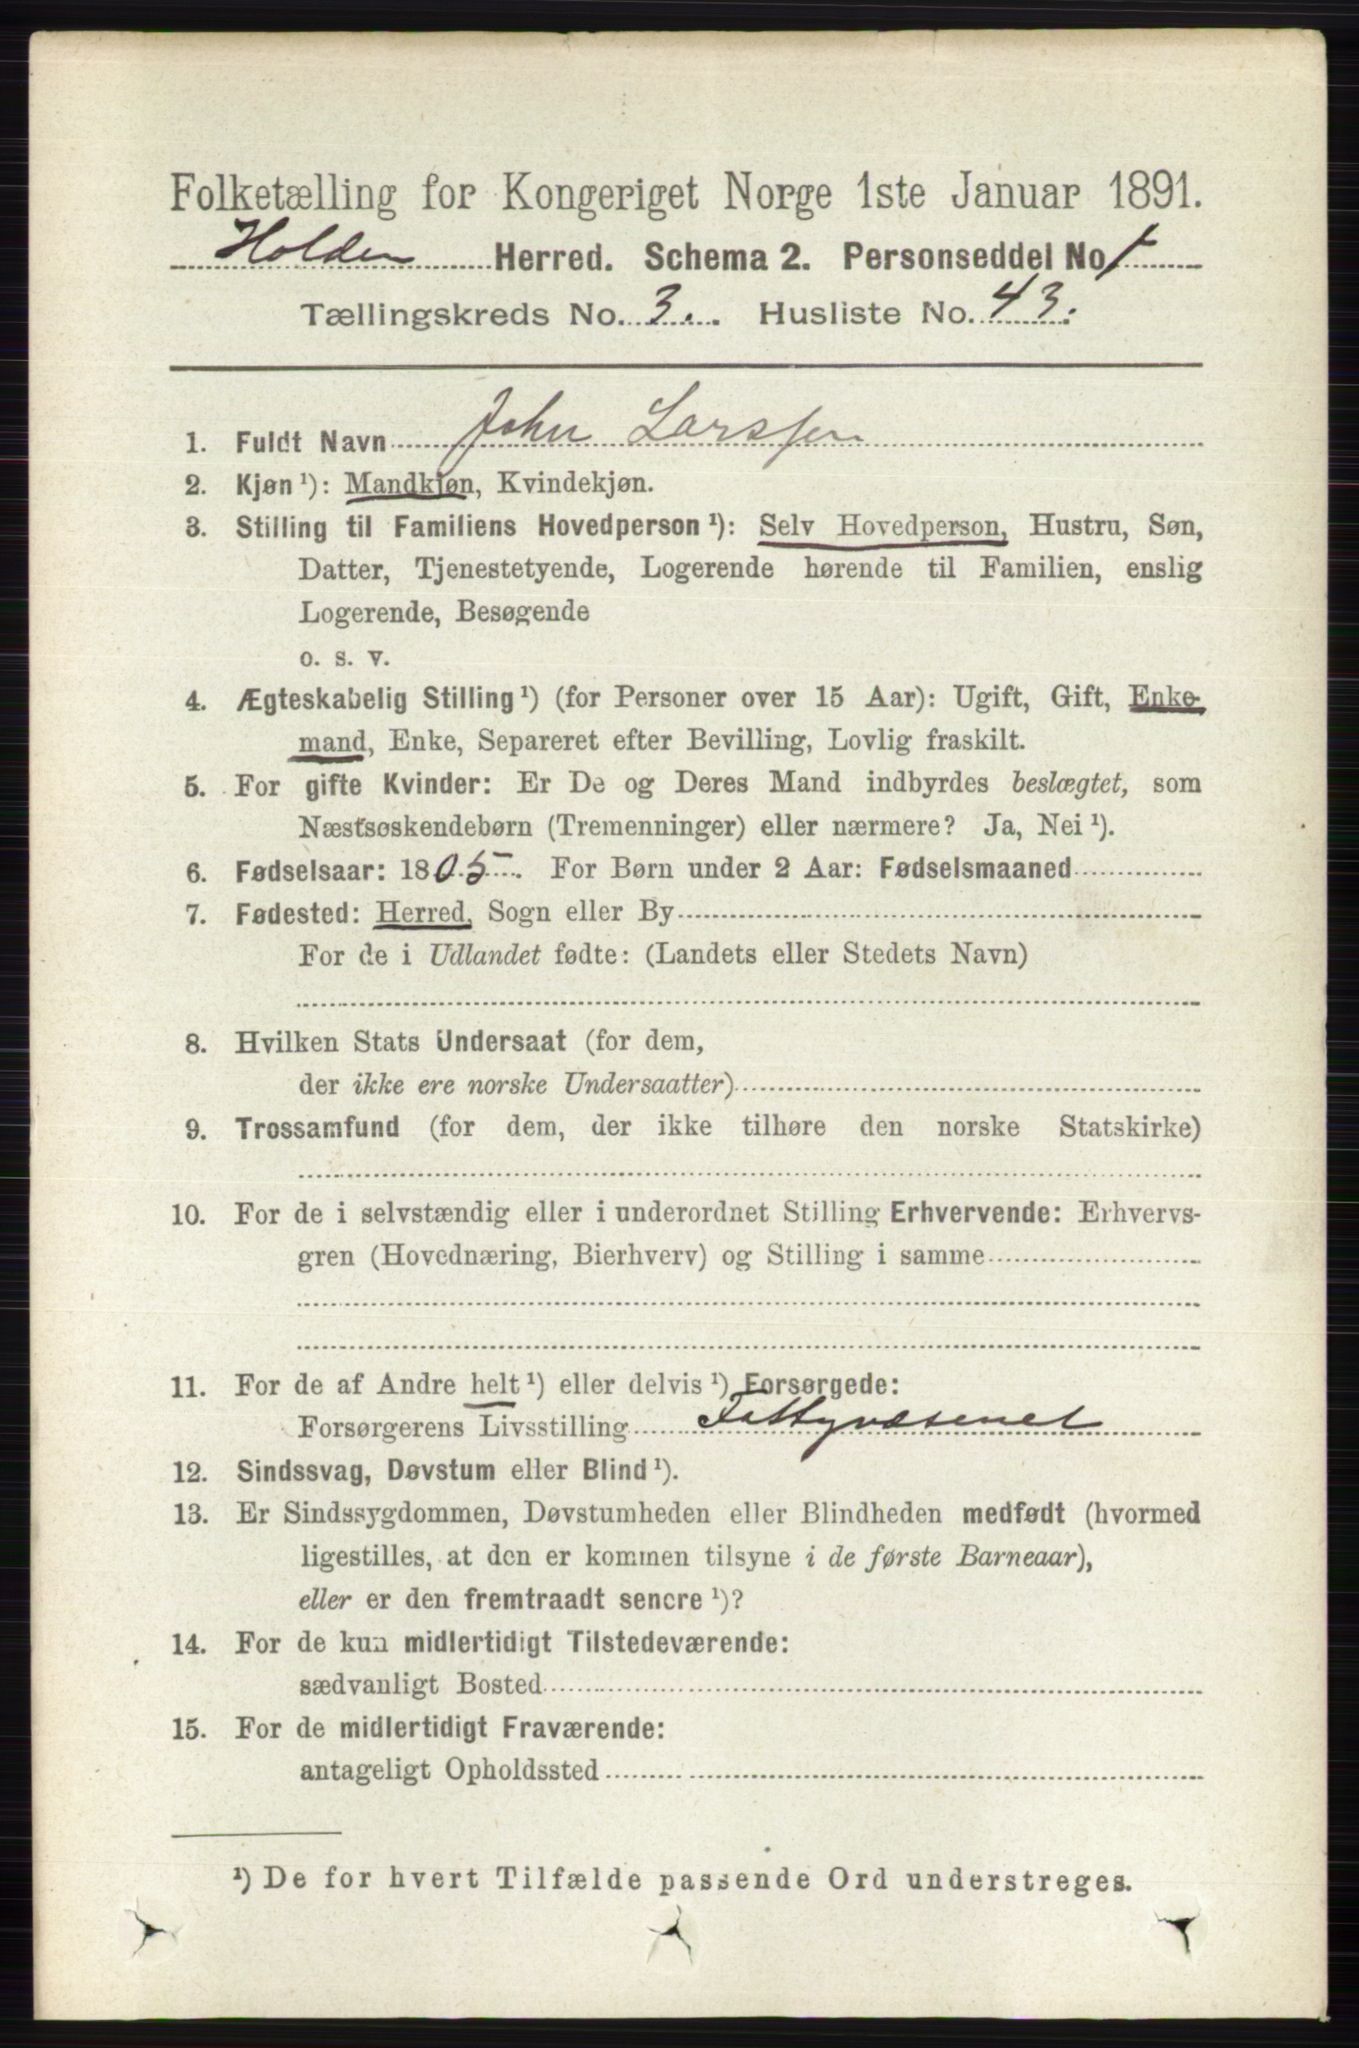 Folketælling for Kongeriget Norge 1ste Januar 1891.
Holden Herred. Schema 2. Personseddel No 1
Tællingskreds No. 3. Husliste No. 43.
1. Fuldt Navn John Larssen
2. Kjøn ¹): Mandkjøn, Kvindekjøn.
3. Stilling til Familiens Hovedperson ¹): Selv Hovedperson, Hustru, Søn,
Datter, Tjenestetyende, Logerende hørende til Familien, enslig
Logerende, Besøgende
o. s. v.
4. Ægteskabelig Stilling ¹) (for Personer over 15 Aar): Ugift, Gift, Enke-
mand, Enke, Separeret efter Bevilling, Lovlig fraskilt.
5. For gifte Kvinder: Er De og Deres Mand indbyrdes beslægtet, som
Næstsøskendebørn (Tremenninger) eller nærmere? Ja, Nei ¹).
6. Fødselsaar: 1805. For Børn under 2 Aar: Fødselsmaaned
7. Fødested: Herred, Sogn eller By
For de i Udlandet fødte: (Landets eller Stedets Navn)
8. Hvilken Stats Undersaat (for dem,
der ikke ere norske Undersaatter)
9. Trossamfund (for dem, der ikke tilhøre den norske Statskirke)
10. For de i selvstændig eller i underordnet Stilling Erhvervende: Erhvervs-
gren (Hovednæring, Bierhverv) og Stilling i samme
11. For de af Andre helt ¹) eller delvis ¹) Forsørgede:
Forsørgerens Livsstilling Fattigvæsenet
12. Sindssvag, Døvstum eller Blind ¹).
13. Er Sindssygdommen, Døvstumheden eller Blindheden medfødt (hvormed
ligestilles, at den er kommen tilsyne i de første Barneaar),
eller er den fremtraadt senere ¹)?
14. For de kun midlertidigt Tilstedeværende:
sædvanligt Bosted
15. For de midlertidigt Fraværende:
antageligt Opholdssted
¹) De for hvert Tilfælde passende Ord understreges.